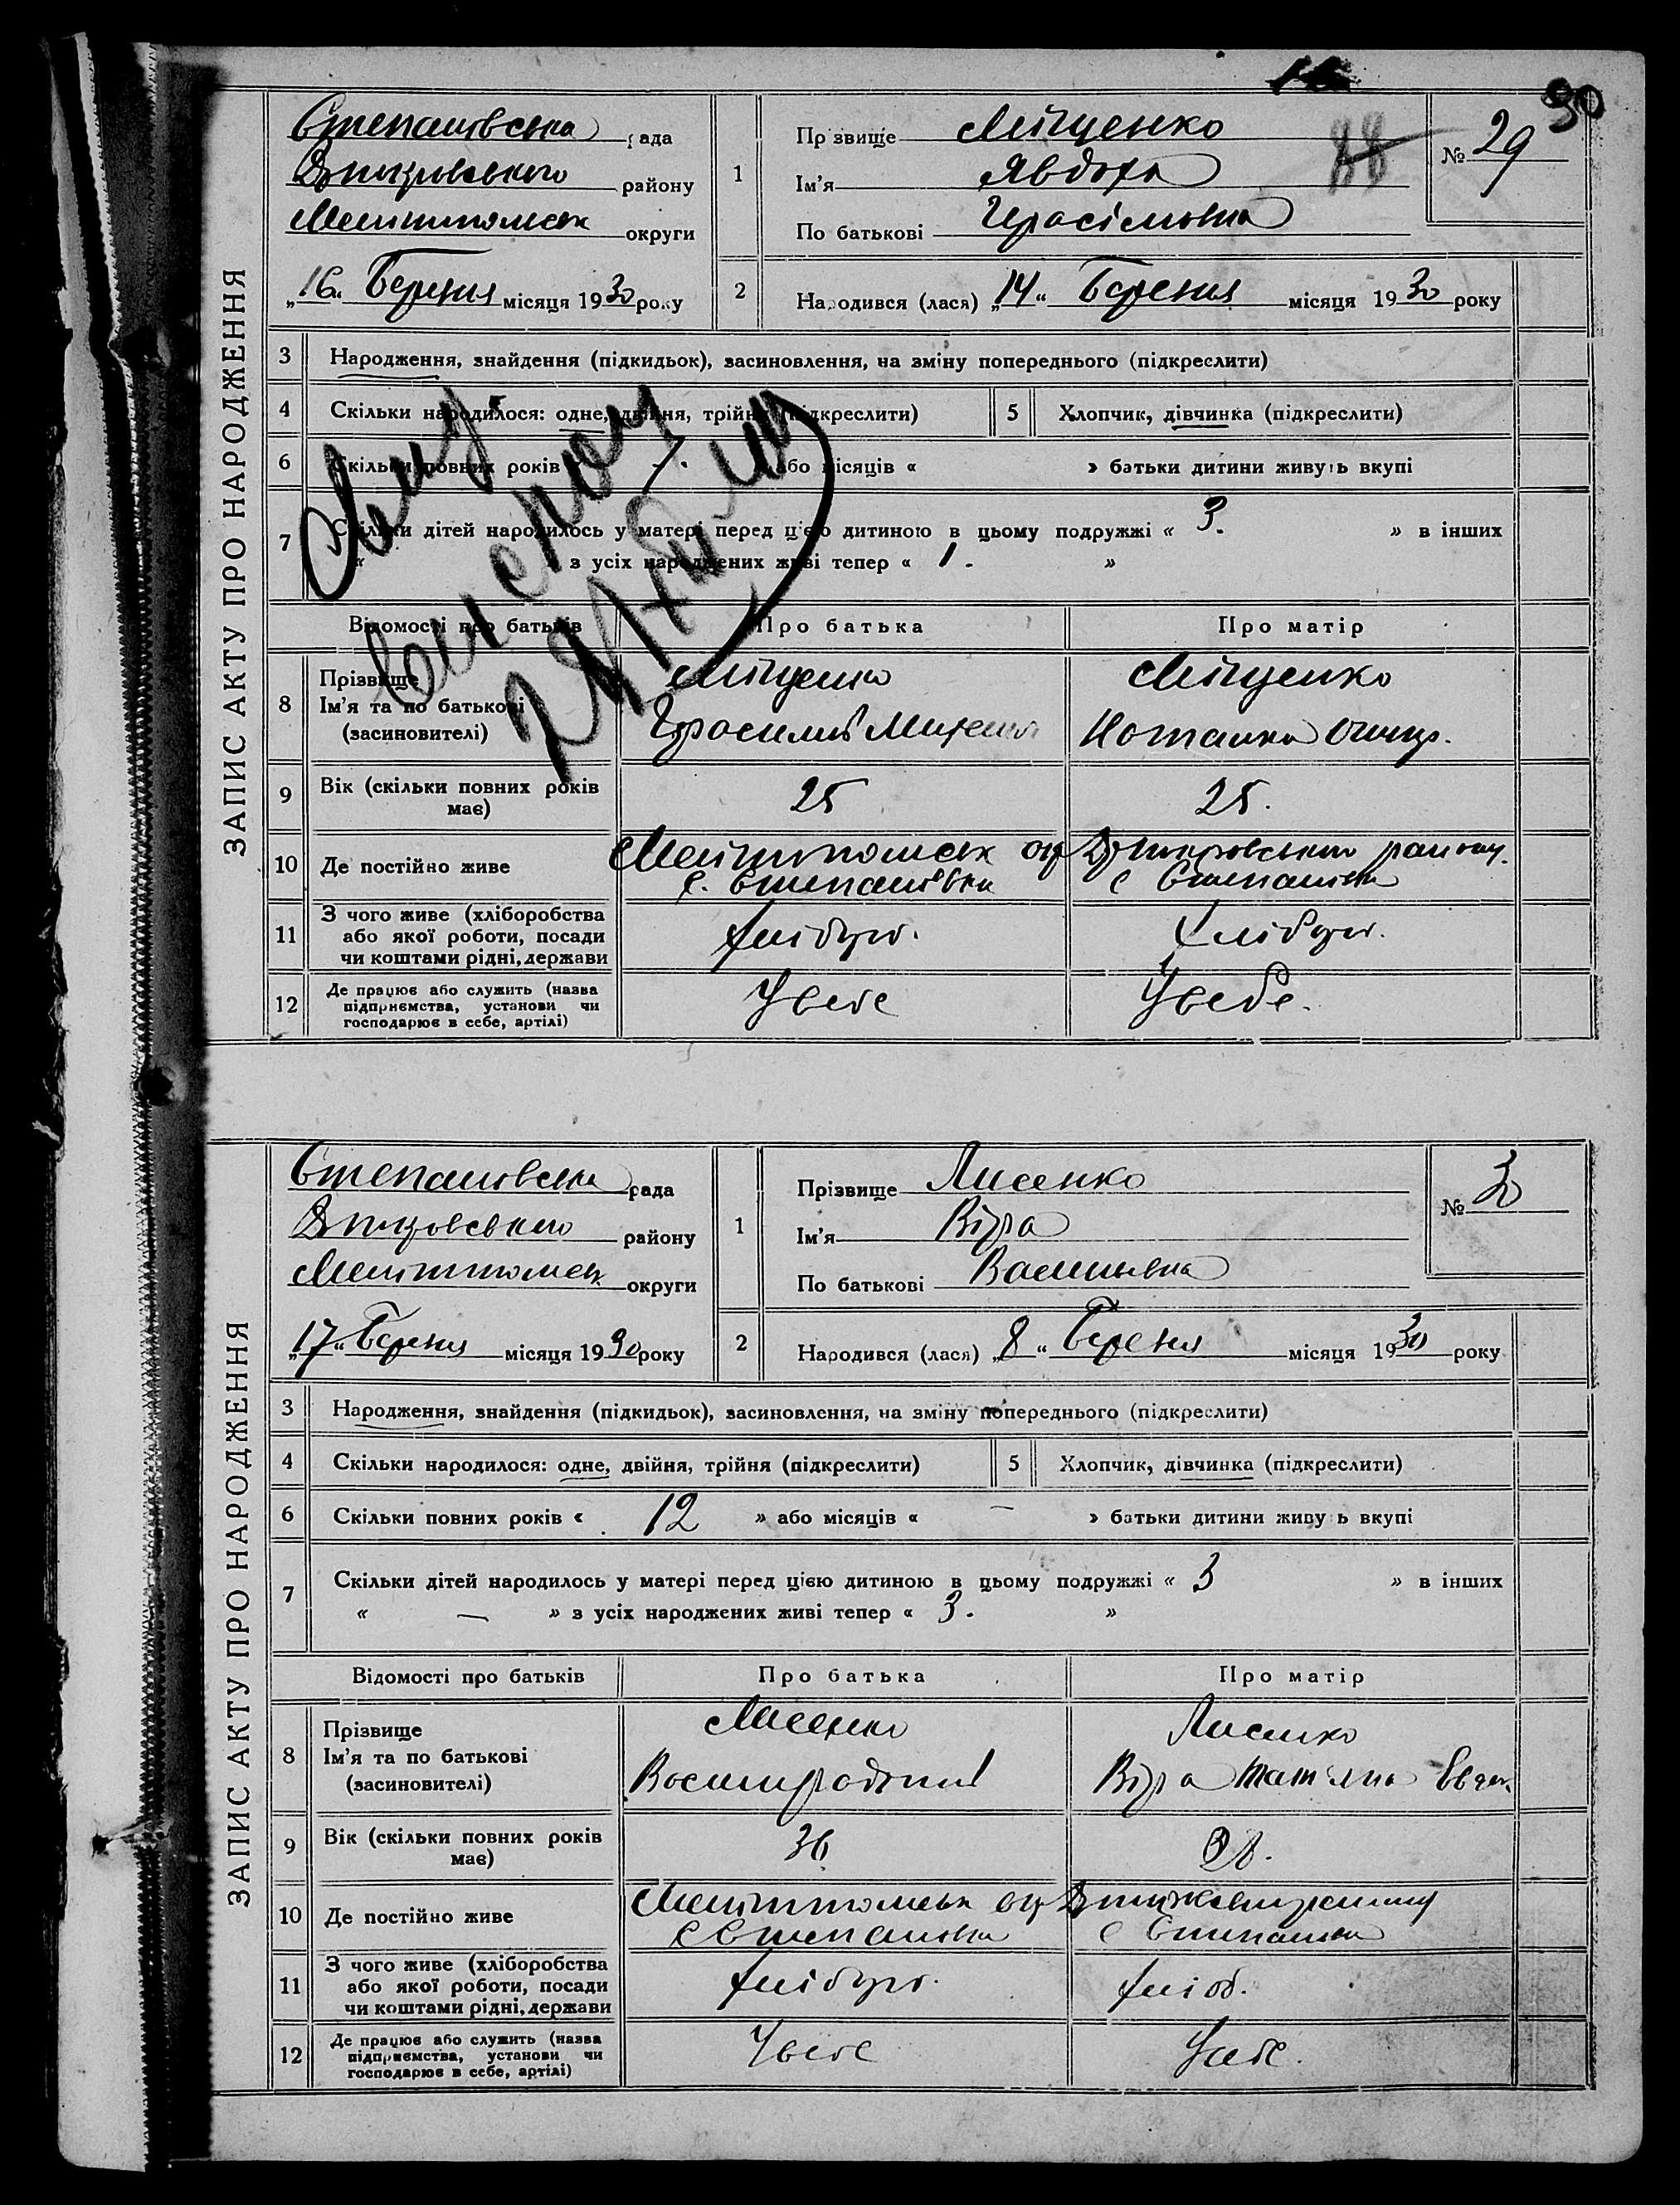 30
ЗАПИС АКТУ ПРО НАРОДЖЕННЯ
Степанівська рада
району
Мелітопольск округи
„16“ Березня місяця 1930 року
1
Прізвище Міщенко
Ім'я Явдоха
По батькові Герасімовна
88
№ 29
2
Народився (лася) „14“ Березня місяця 1930 року
3 Народження, знайдення (підкидьок), засиновлення, на зміну попереднього (підкреслити)
4 Скільки народилося: одне, двійня, трійня (підкреслити)
5 Хлопчик, дівчинка (підкреслити)
6 Скільки повних років « 7. » або місяців « » батьки дитини живуть вкупі
7 Скільки дітей народилось у матері перед цією дитиною в цьому подружжі « 3. » в інших
« » з усіх народжених живі тепер « 1. »
Відомості про батьків Про батька Про матір
8 Прізвище
Ім'я та по батькові
(засиновителі)
Міщенко
Герасим
Міщенко
9 Вік (скільки повних років має)
25
25.
10 Де постійно живе
Мелітопольск окр району.
с. Степанівка с Степанівка
11 З чого живе (хліборобства
або якої роботи, посади
чи коштами рідні, держави
хлібороб.
Хлібороб.
12 Де працює або служить (назва
підприємства, установи чи
господарює в себе, артілі)
У себе
У себе.
ЗАПИС АКТУ ПРО НАРОДЖЕННЯ
Степановська рада
району
Мелітопольск округи
„17“ Березня місяця 1930 року
1
Прізвище Лисенко
Ім'я Віра
По батькові Васильевна
№ 30
2
Народився (лася) „8“ Березня місяця 1930 року
3 Народження, знайдення (підкидьок), засиновлення, на зміну попереднього (підкреслити)
4 Скільки народилося: одне, двійня, трійня (підкреслити)
5 Хлопчик, дівчинка (підкреслити)
6 Скільки повних років « 12 » або місяців « — » батьки дитини живуть вкупі
7 Скільки дітей народилось у матері перед цією дитиною в цьому подружжі « 3 » в інших
« — » з усіх народжених живі тепер « 3. »
Відомості про батьків Про батька Про матір
8 Прізвище
Ім'я та по батькові
(засиновителі)
Лисенко
Лисенко
Віра Татьяна
9 Вік (скільки повних років має)
36
10 Де постійно живе
Мелітопольск окр
с Степановка с Степановка
11 З чого живе (хліборобства
або якої роботи, посади
чи коштами рідні, держави
хлібороб.
хліб.
12 Де працює або служить (назва
підприємства, установи чи
господарює в себе, артілі)
У себе
У себе.